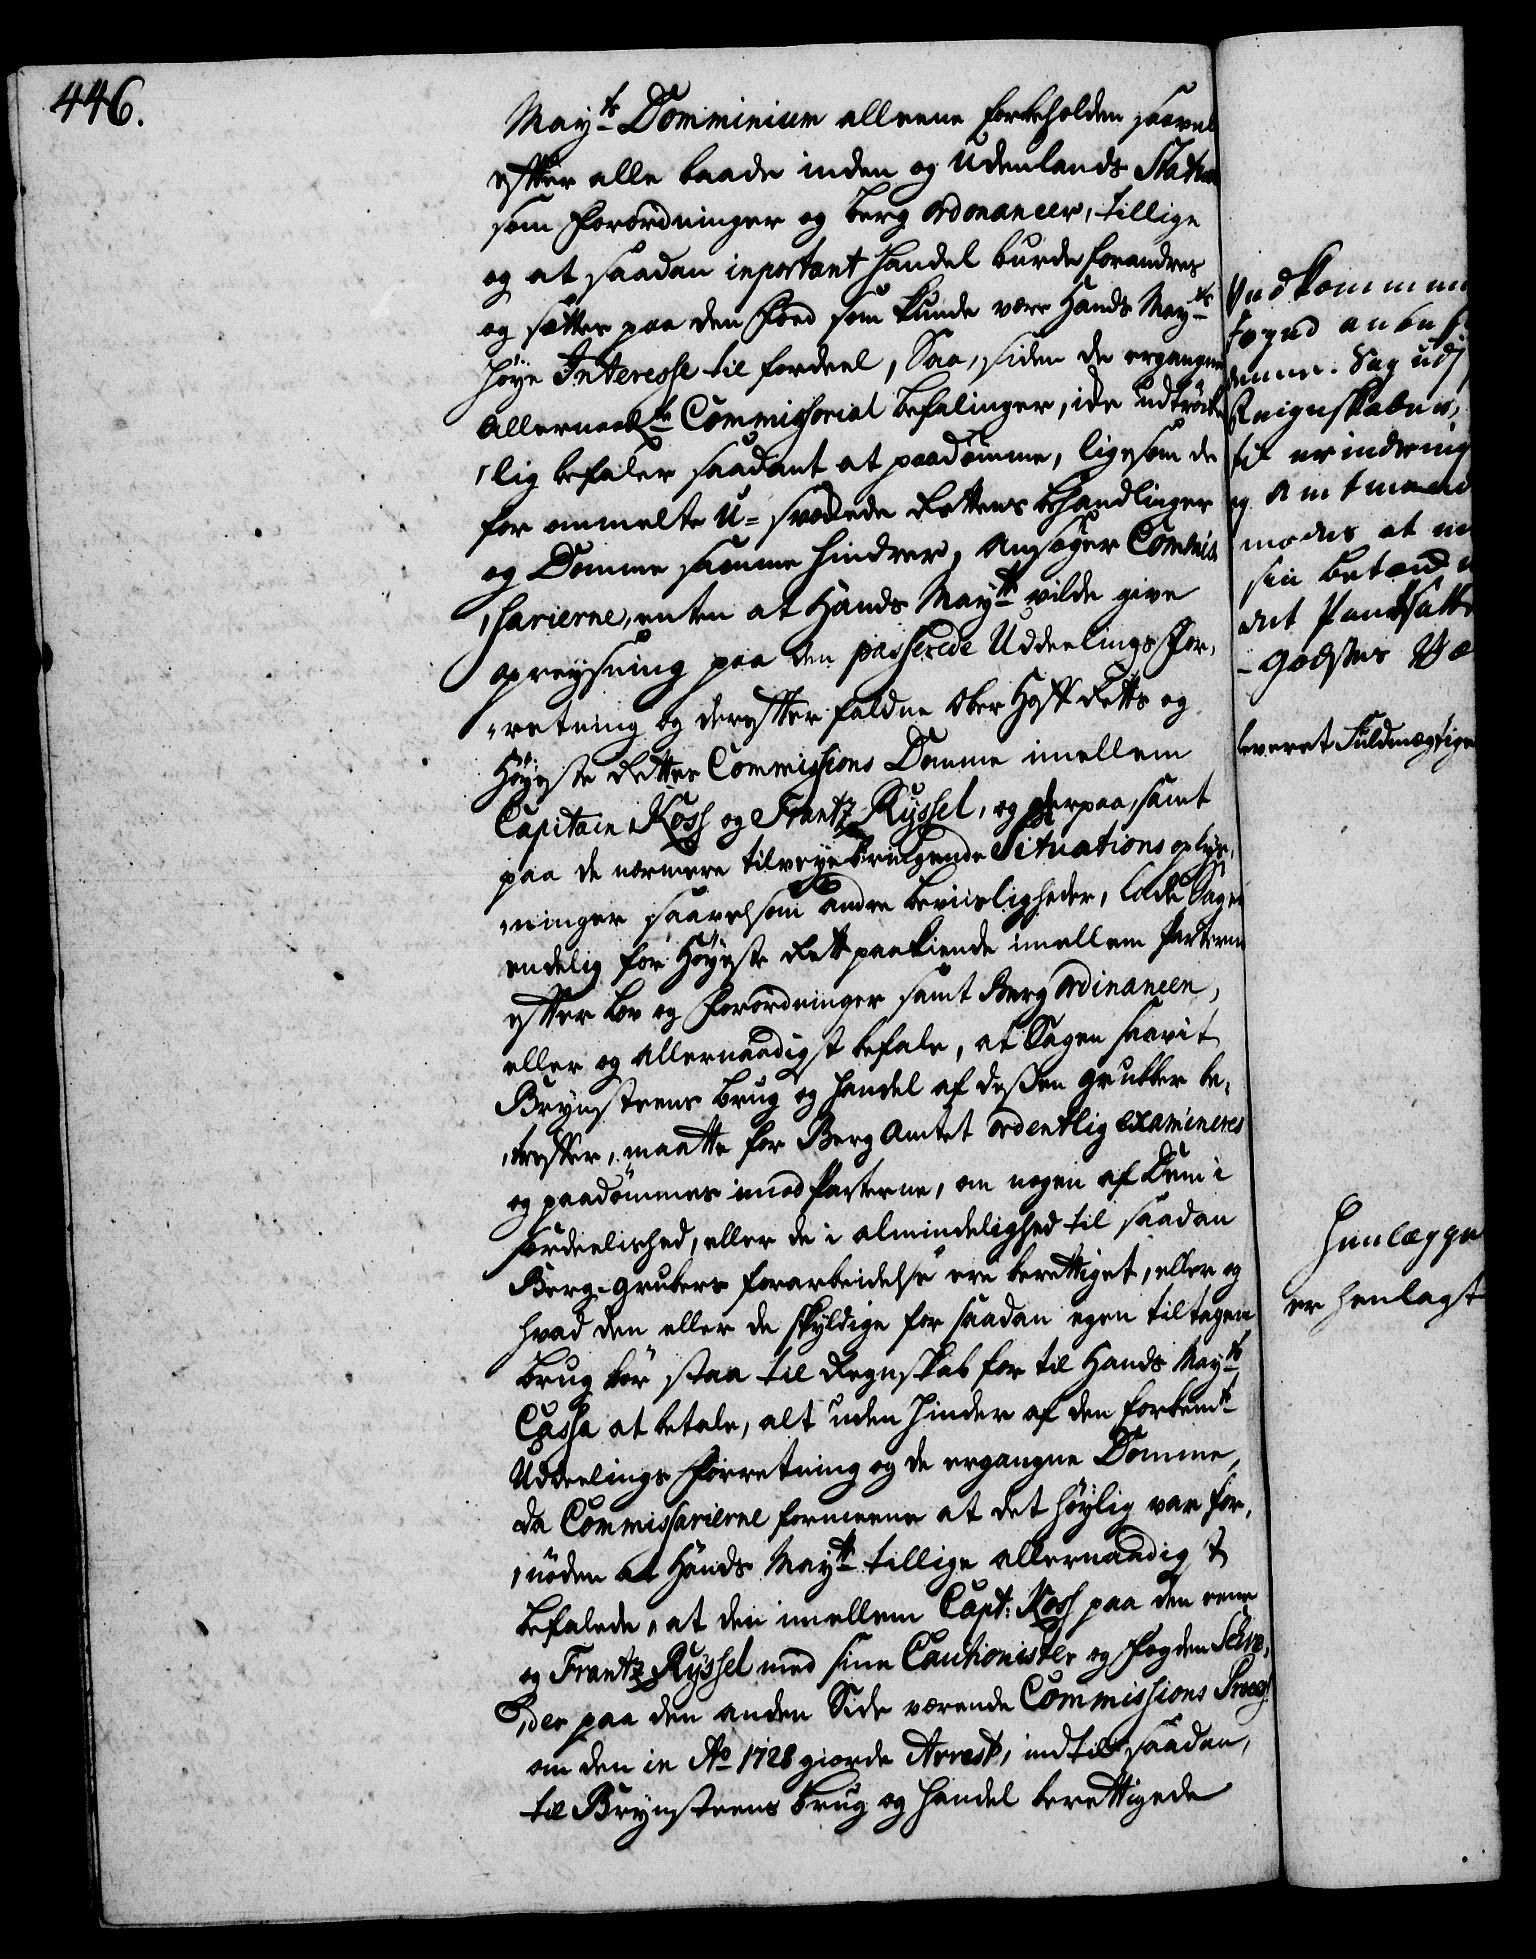 446.
Mayts Domminium alleene forbeholden saavel
efter alle baade inden og Udenlands Statu
som Forordninger og Berg ordonancer, tillige
og at saadan inportant Handel burde forandres
og sættes paa den Foed som kunde være Hands Mayts
Høye Interesse til fordeel, Saa, siden de ergangne
Allernaadte Commissorial befalinger, ide udtrÿcke
lig befaler saadant at paadømme, ligesom de
for ommelte U- svækede Rettens behandlinger
og Domme samme hindrer, Ansøger Commis
sarierne, enten at Hands Maytt vilde give
opreysning paa den passerede Uddeelings For,
retning og derefter faldne Ober Hoff Retts og
Høyeste Rettes Commissions Domme imellem
Capitain Koss og Frantz Ryssel, og derpaa, samt
paa de nærmere tilveyebringende Situations oplys,
ninger saavelsom andre beviisligheder, lade Sagen
endelig for Høyeste Rett paakiende imellem Parterne
efter Lov og Forordninger samt Berg ordinancen,
eller og allernaadigst befale, at Sagen saavit
Brynsteens brug og Handel af deßen grubber be,
treffer, maatte for Berg Amtet ordentlig examineres
og paadømmes imod Parterne, om nogen af Dem i
særdeelished, eller de i almindelighed til saadan
Berg-grubers forarbeidelse ere berettiget, eller og
hvad den eller de skyldige for saadan egen tiltagen
brug bør staa til Regnskab for til Hands Mayts
Cassa at betale, alt uden Hinder af den forbemte
Uddeelings Forretning og de ergangne Domme,
da Commissarierne formeene at det høylig var for,
nøden at Hands Maytt tillige allernaadigst
befalede, at den imellem Capt: Koss paa den eene
og Frantz Ryssel med sine Cautionister og Fogden
paa den anden Side værende Commissions Process
om den in Ao 1728 giorde Arrest, indtil saadan,
til Brynsteens brug og Handel berettigede
Vedkommen
Foged anbef
denne Sag udj
Reignskaben,
til erindring
og Amtmand
modes at
sin betænd
det Pantsatte
- Godses Væ
leveret Fuldmægtigen
Henlægges
er henlagt